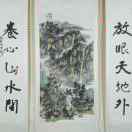 放眼天地外
養心山水間